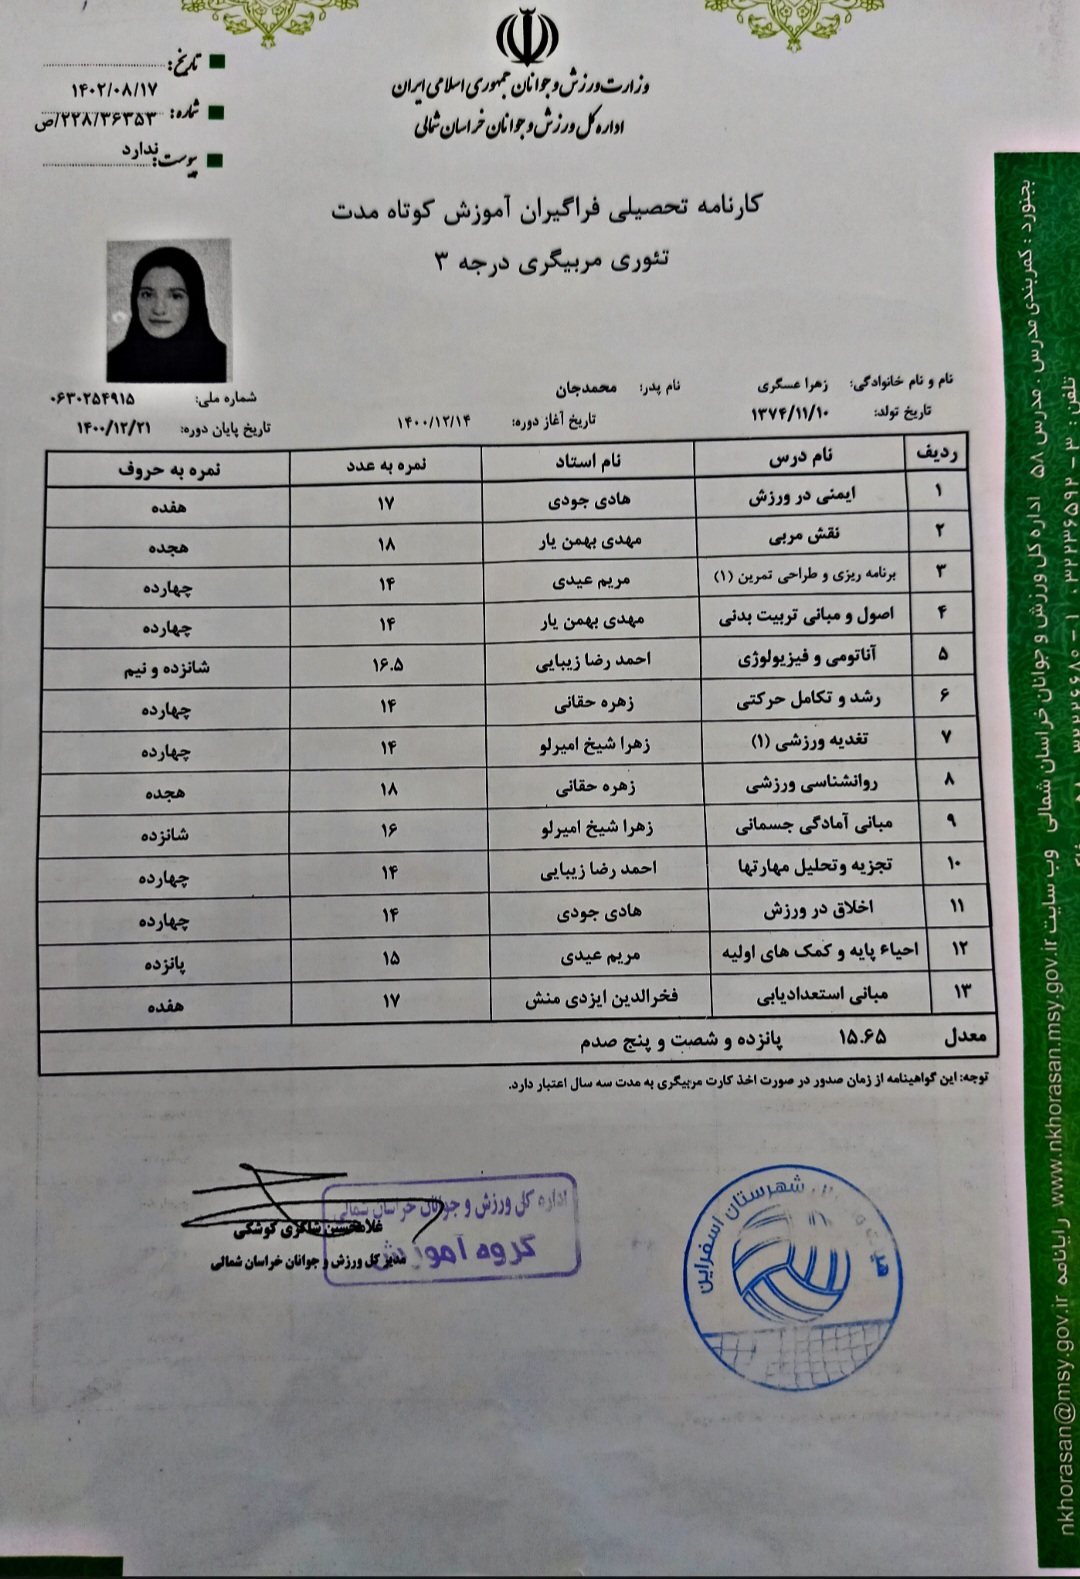 وزارت ورزش و جوانان جمهوری اسلامی ایران
اداره کل ورزش و جوانان خراسان شمالی
تاریخ: ۱۴۰۲/۰۸/۱۷
شماره: ۲۲۸/۳۶۳۵۳/ص
پیوست: ندارد
کارنامه تحصیلی فراگیران آموزش کوتاه مدت
تئوری مربیگری درجه ۳
نام و نام خانوادگی: زهرا عسگری نام پدر: محمدجان شماره ملی: ۰۶۳۰۲۵۴۹۱۵
تاریخ تولد: ۱۳۷۴/۱۱/۱۰ تاریخ آغاز دوره: ۱۴۰۰/۱۲/۱۴ تاریخ پایان دوره: ۱۴۰۰/۱۲/۲۱
ردیف نام درس نام استاد نمره به عدد نمره به حروف
۱ ایمنی در ورزش هادی جودی ۱۷ هفده
۲ نقش مربی مهدی بهمن یار ۱۸ هجده
۳ برنامه ریزی و طراحی تمرین (۱) مریم عیدی ۱۴ چهارده
۴ اصول و مبانی تربیت بدنی مهدی بهمن یار ۱۴ چهارده
۵ آناتومی و فیزیولوژی احمد رضا زیبایی ۱۶.۵ شانزده و نیم
۶ رشد و تکامل حرکتی زهره حقانی ۱۴ چهارده
۷ تغدیه ورزشی (۱) زهرا شیخ امیرلو ۱۴ چهارده
۸ روانشناسی ورزشی زهره حقانی ۱۸ هجده
۹ مبانی آمادگی جسمانی زهرا شیخ امیرلو ۱۶ شانزده
۱۰ تجزیه وتحلیل مهارتها احمد رضا زیبایی ۱۴ چهارده
۱۱ اخلاق در ورزش هادی جودی ۱۴ چهارده
۱۲ احیاء پایه و کمک های اولیه مریم عیدی ۱۵ پانزده
۱۳ مبانی استعدادیابی فخرالدین ایزدی منش ۱۷ هفده
معدل ۱۵.۶۵ پانزده و شصت و پنج صدم
توجه: این گواهینامه از زمان صدور در صورت اخذ کارت مربیگری به مدت سه سال اعتبار دارد.
اداره کل ورزش و جوانان خراسان شمالی
گروه آموزش
غلامحسین شاکری کوشکی
مدیر کل ورزش و جوانان خراسان شمالی
شهرستان اسفراین
بجنورد : کمربندی مدرس . مدرس ۵۸ اداره کل ورزش و جوانان خراسان شمالی وب سایت www.nkhorasan.msy.gov.ir رایانامه nkhorasan@msy.gov.ir
تلفن : ۳ -